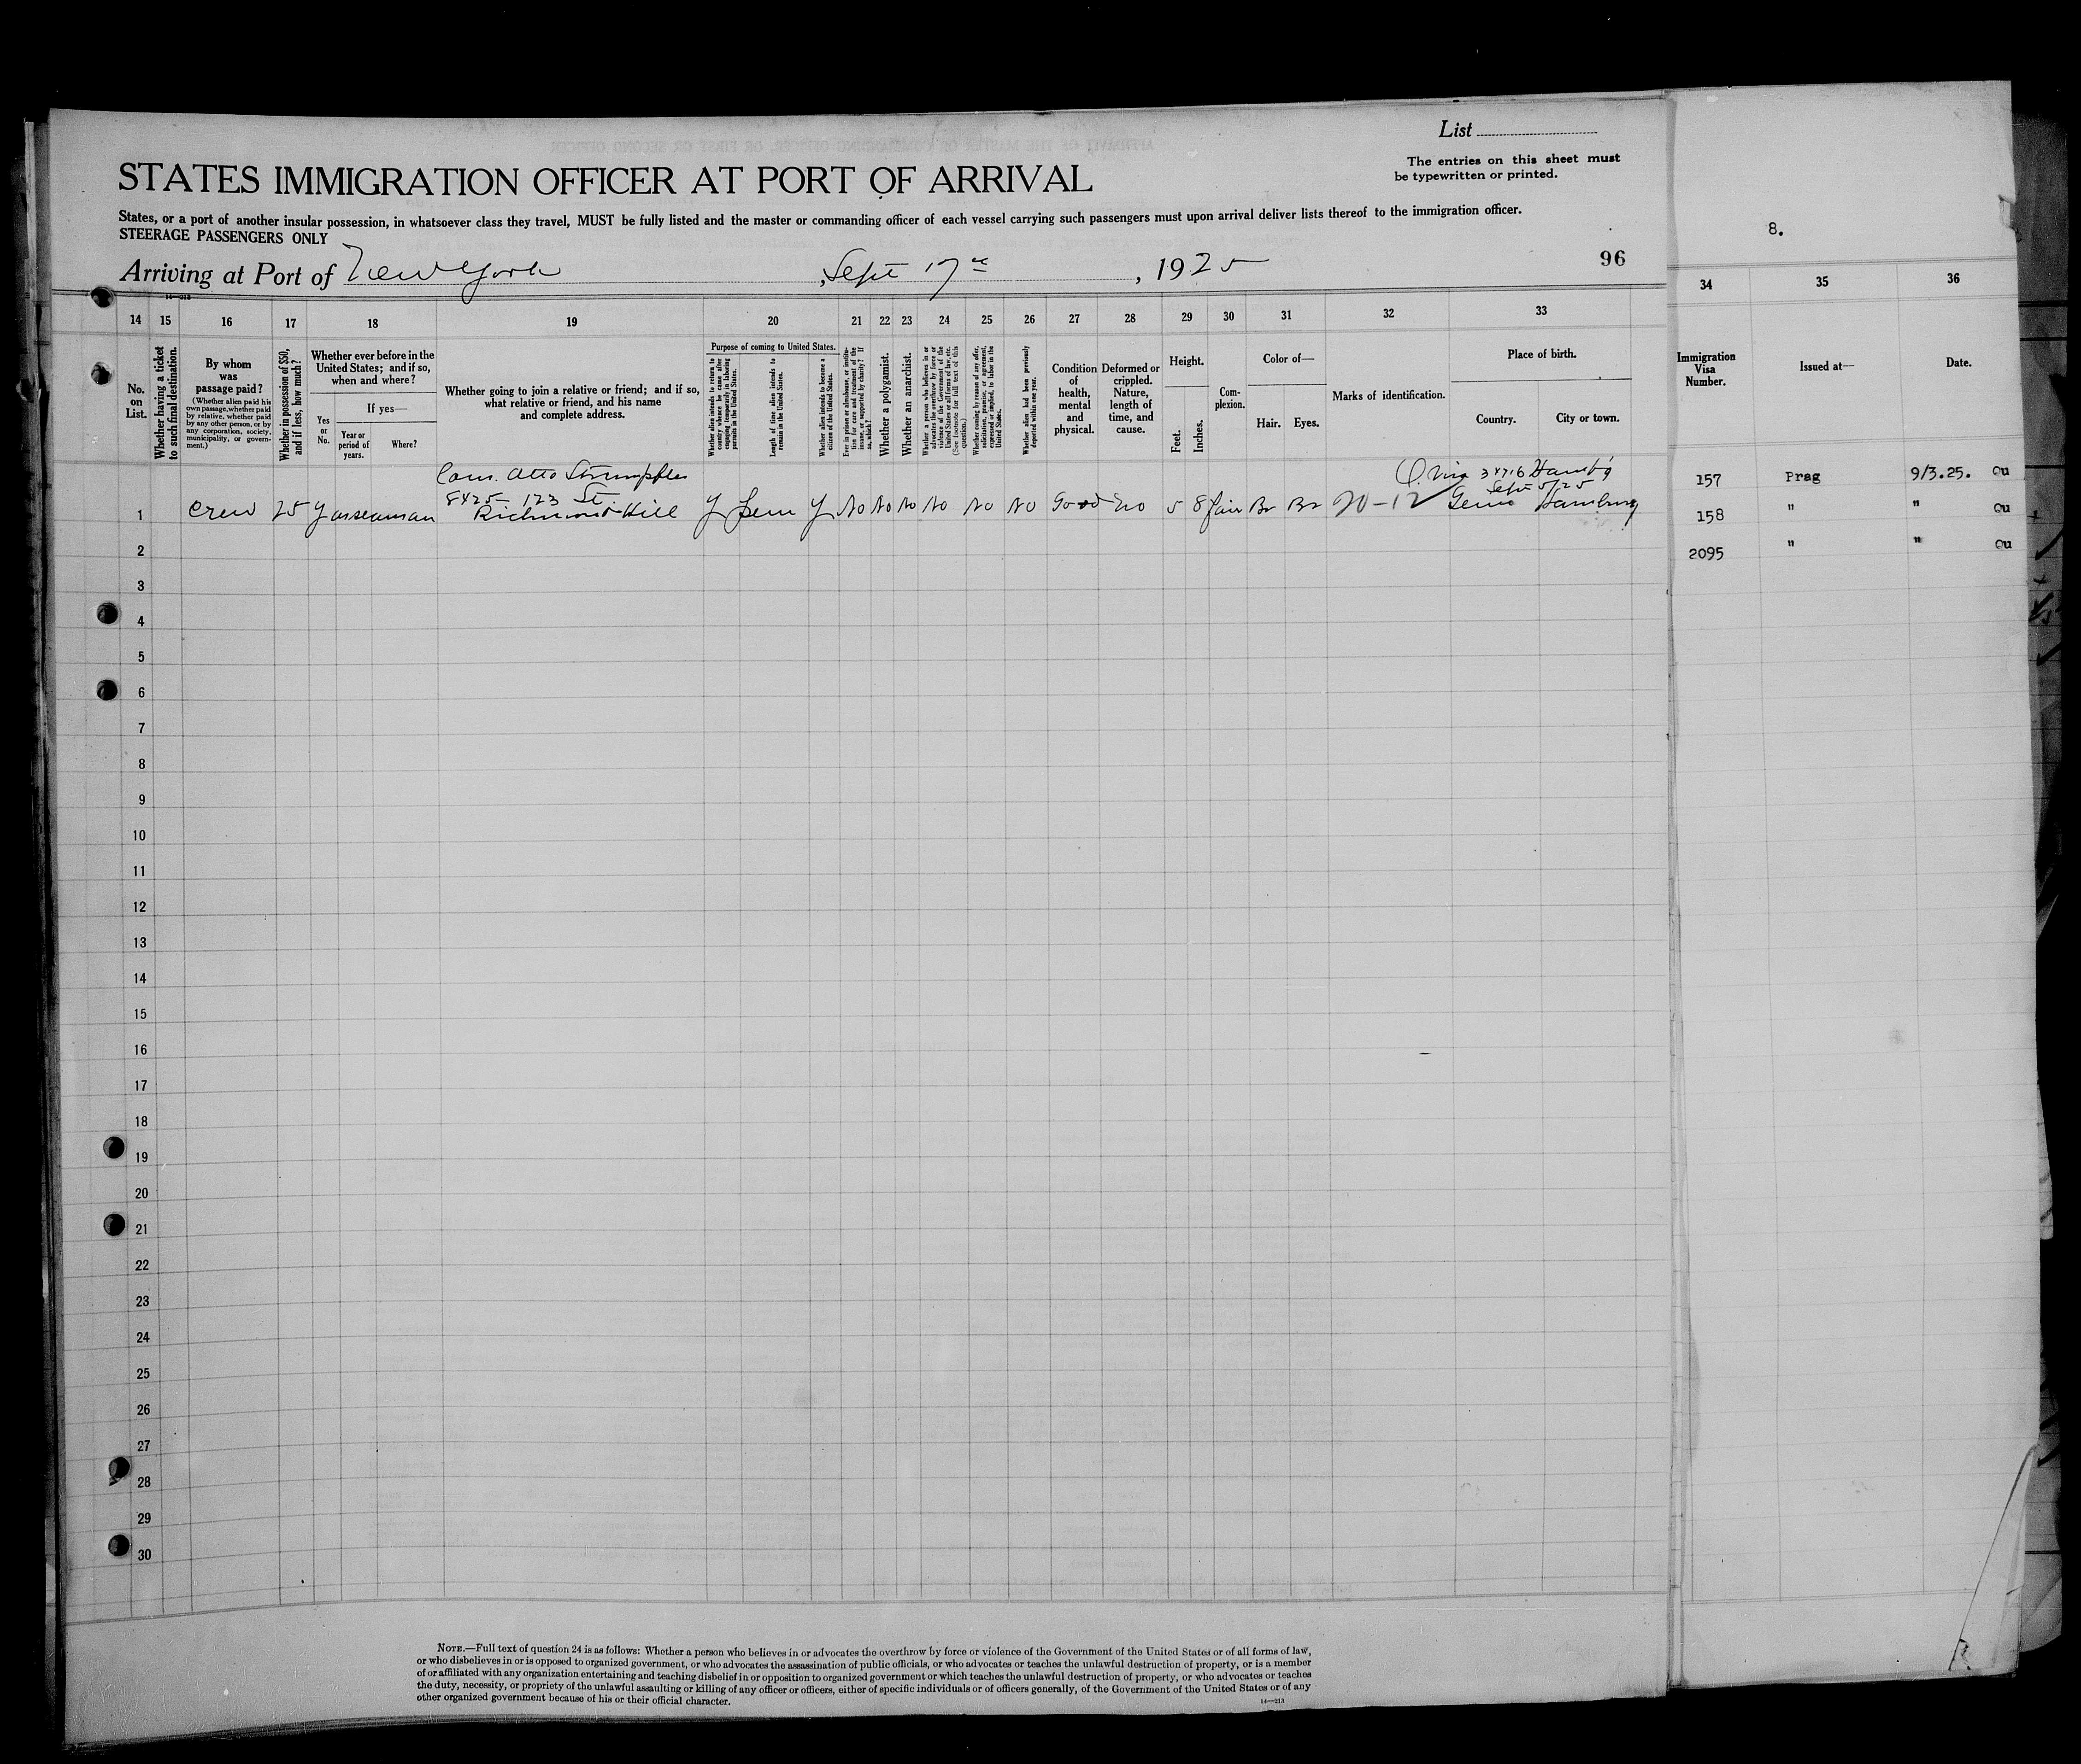 List
The entries on this sheet must
be typewritten or printed.
STATES IMMIGRATION OFFICER AT PORT OF ARRIVAL
States, or a port of another insular possession, in whatsoever class they travel, MUST be fully listed and the master or commanding officer of each vessel carrying such passengers must upon arrival deliver lists thereof to the immigration officer.
STEERAGE PASSENGERS ONLY
Arriving at Port of New York, Sept 17th, 1925
96
8.
14 15 16 17 18 19 20 21 22 23 24 25 26 27 28 29 30 31 32 33 34 35 36
No.
on
List.
Whether having a ticket
to such final destination.
By whom
was
passage paid?
(Whether alien paid his
own passage, whether paid
by relative, whether paid
by any other person, or by
any corporation, society,
municipality, or govern-
ment.)
Whether in possession of $50,
and if less, how much?
Whether ever before in the
United States; and if so,
when and where?
Yes
or
No.
If yes—
Year or
period of
years.
Where?
Whether going to join a relative or friend; and if so,
what relative or friend, and his name
and complete address.
Purpose of coming to United States.
Whether alien intends to return to
country whence he came after
engaging temporarily in laboring
pursuits in the United States.
Length of time alien intends to
remain in the United States.
Whether alien intends to become a
citizen of the United States.
Ever in prison or almshouse, or institu-
tion for care and treatment of the
insane, or supported by charity? If
so, which?
Whether a polygamist.
Whether an anarchist.
Whether a person who believes in or
advocates the overthrow by force or
violence of the Government of the
United States or all forms of law, etc.
(See footnote for full text of this
question.)
Whether coming by reason of any offer,
solicitation, promise, or agreement,
expressed or implied, to labor in the
United States.
Whether alien had been previously
deported within one year.
Condition
of
health,
mental
and
physical.
Deformed or
crippled.
Nature,
length of
time, and
cause.
Height.
Feet.
Inches.
Com-
plexion.
Color of—
Hair. Eyes.
Marks of identification.
Place of birth.
Country. City or town.
Immigration
Visa
Number.
Issued at—
Date.
Cous. Otto
8425 123 St.
Richmond Hill
Sept 5/25
1 Crew 25 Y as seaman Y Y No No No No No No Good No 5 8 fair Br Br Hamburg
157 Prag 9/3.25.
158 " "
2095 " "
2
3
4
5
6
7
8
9
10
11
12
13
14
15
16
17
18
19
20
21
22
23
24
25
26
27
28
29
30
NOTE.—Full text of question 24 is as follows: Whether a person who believes in or advocates the overthrow by force or violence of the Government of the United States or of all forms of law,
or who disbelieves in or is opposed to organized government, or who advocates the assassination of public officials, or who advocates or teaches the unlawful destruction of property, or is a member
of or affiliated with any organization entertaining and teaching disbelief in or opposition to organized government or which teaches the unlawful destruction of property, or who advocates or teaches
the duty, necessity, or propriety of the unlawful assaulting or killing of any officer or officers, either of specific individuals or of officers generally, of the Government of the United States or of any
other organized government because of his or their official character.
14—213